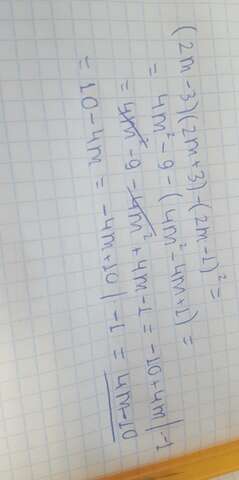 (2m-3)(2m+3)-(2m-1)² =
= 4m² - 9 - (4m² - 4m + 1) =
= 4m² - 9 - 4m² + 4m - 1 = -10 + 4m |-1
= 10 - 4m = -4m + 10 |-1 = 4m - 10